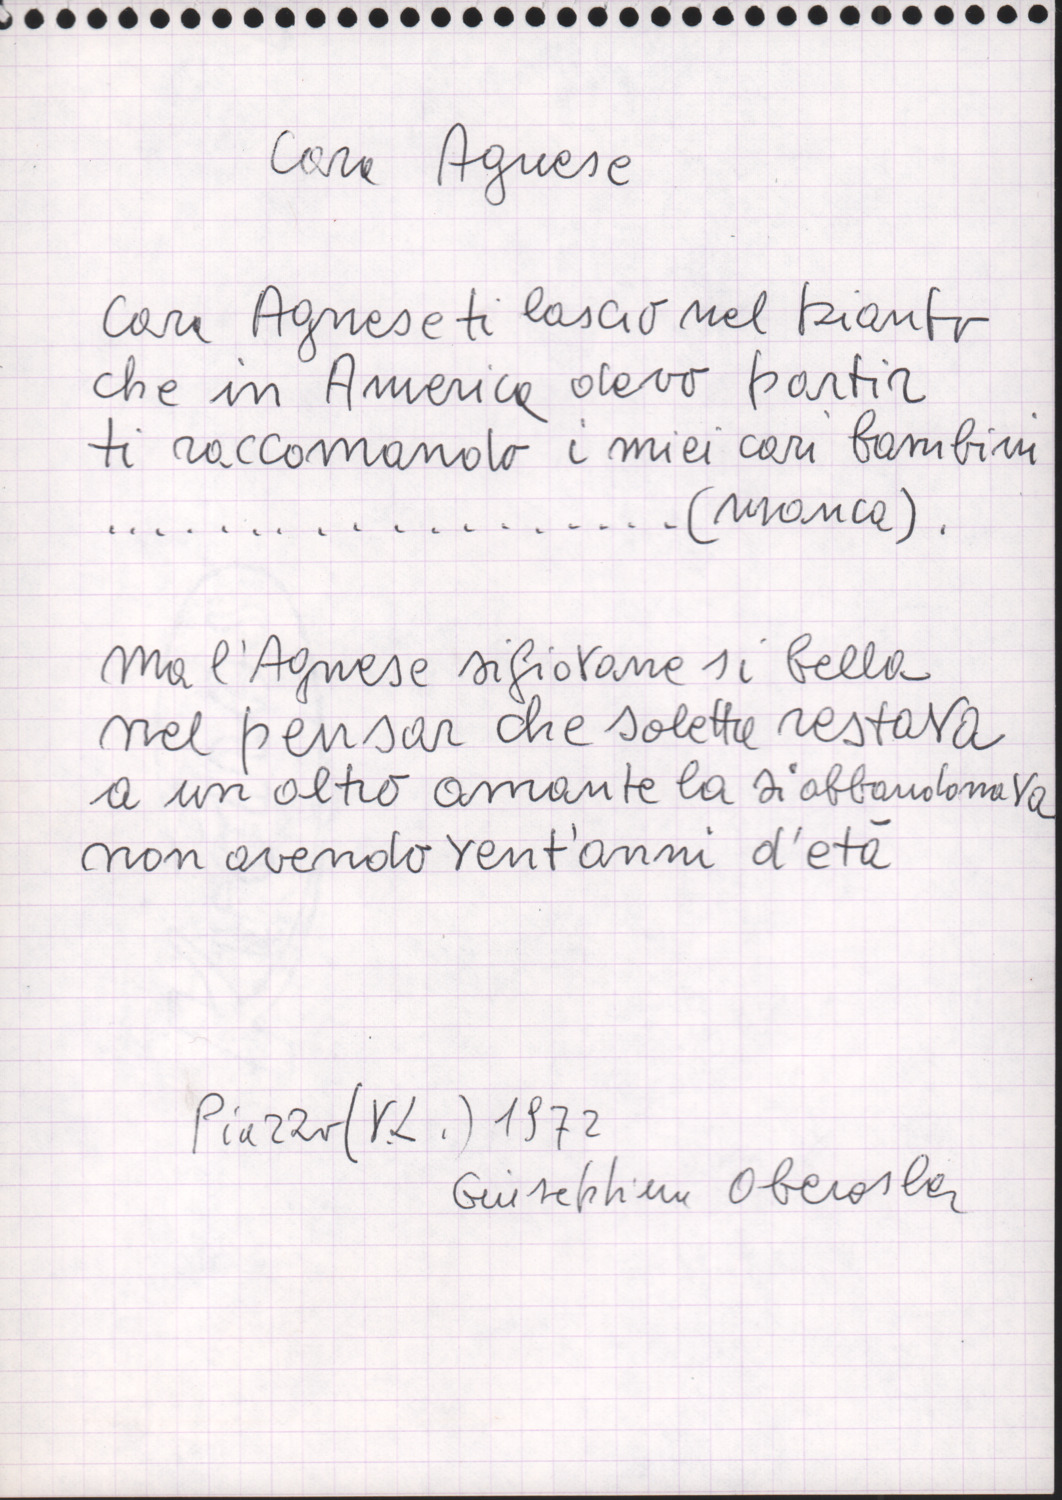 Cara Agnese
Cara Agnese ti lascio nel pianto
che in America devo partir
ti raccomando i miei cari bambini
....................(manca).
Ma l'Agnese si giovane si bella
nel pensar che soletta restava
a un altro amante la si abbandonava
non avendo vent'anni d'età
Piazzo (V.L.) 1972
Giuseppina Oberosler